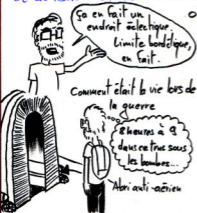 Ça en fait un
endroit éclectique.
Limite bordélique,
en fait.
Comment était la vie lors de
la guerre
8 heures à 9
dans ce truc sous
les bombes...
Abri anti-aérien